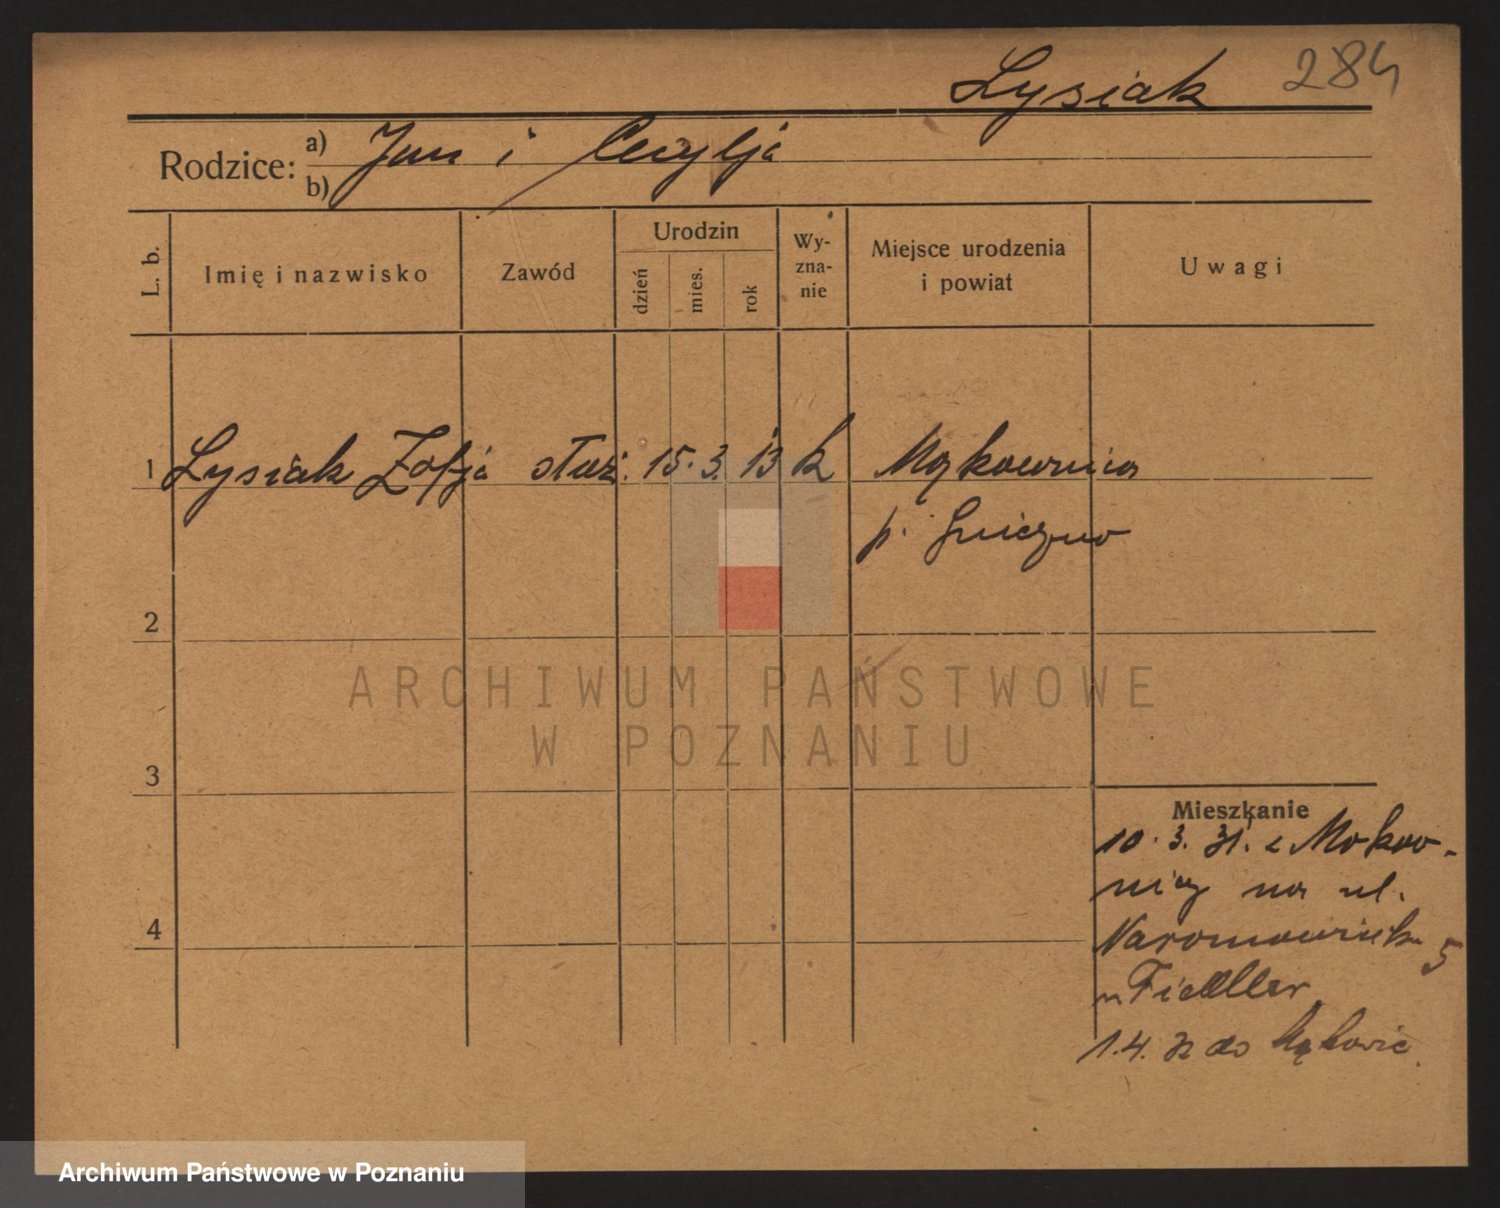 Łysiak 284
Rodzice: a) Jan i Cecylja
b)
L. b. Imię i nazwisko Zawód Urodzin dzień mies. rok Wyznanie Miejsce urodzenia i powiat Uwagi
1 Łysiak Zofja służ. 15. 3. 13 k Mąkownica
p. Gniezno
2
ARCHIWUM PAŃSTWOWE
W POZNANIU
3
Mieszkanie
10. 3. 31. z Mąkow-
nicy na ul.
Naromowick. 5
u Fiedller
4
1. 4. 32 do
Archiwum Państwowe w Poznaniu